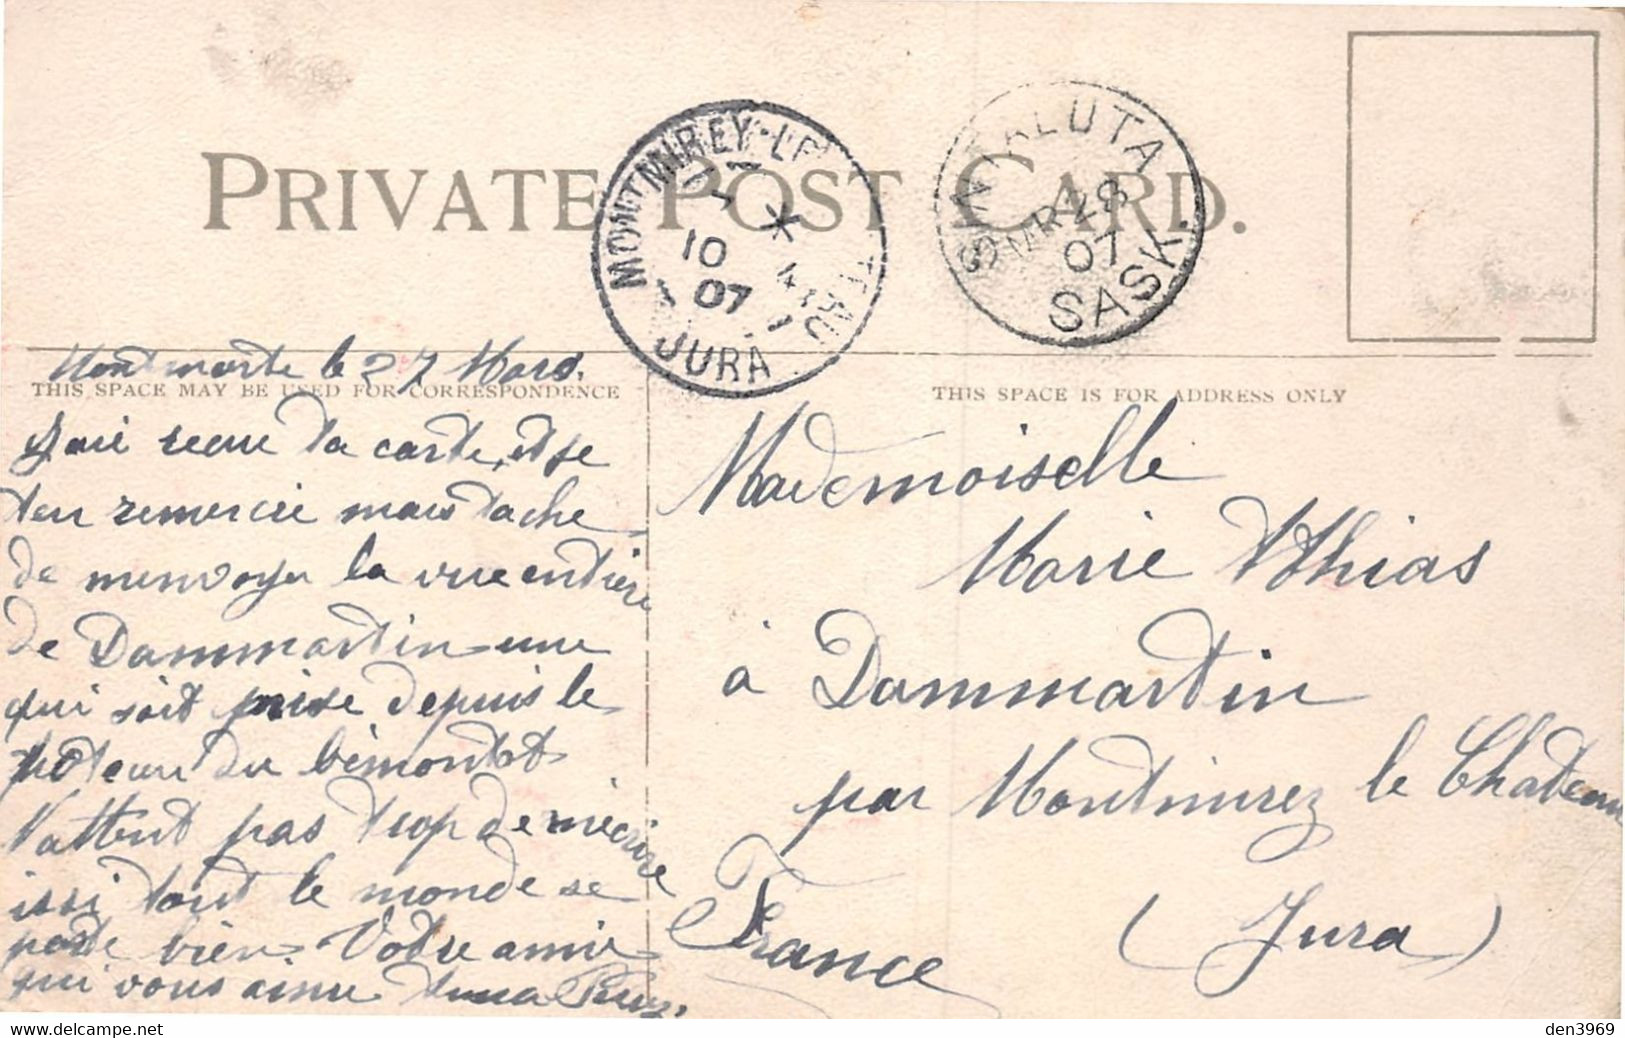 PRIVATE POST CARD.
MONTMIREY-LE-CHATEAU
10
07
JURA
SINTALUTA
MR 28
07
SASK.
Montmarte le 27 Mars.
THIS SPACE MAY BE USED FOR CORRESPONDENCE
THIS SPACE IS FOR ADDRESS ONLY
J'ai recue ta carte, et je
t'en remercie mais tache
de m'envoyer la vue entiere
de Dammartin une
qui soit prise depuis le
poteau du bémontot
N'attent pas trop de m'écrire
issi tout le monde se
porte bien. Votre amie
qui vous aime
Mademoiselle
Marie Athias
à Dammartin
par Montmirez le Chateau
(Jura)
France
den3969